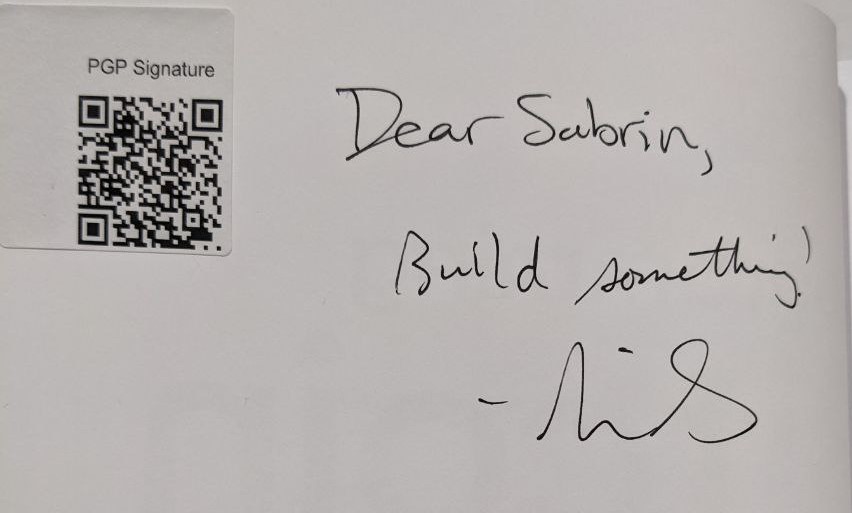 PGP Signature
Dear Sabrin,
Build something!